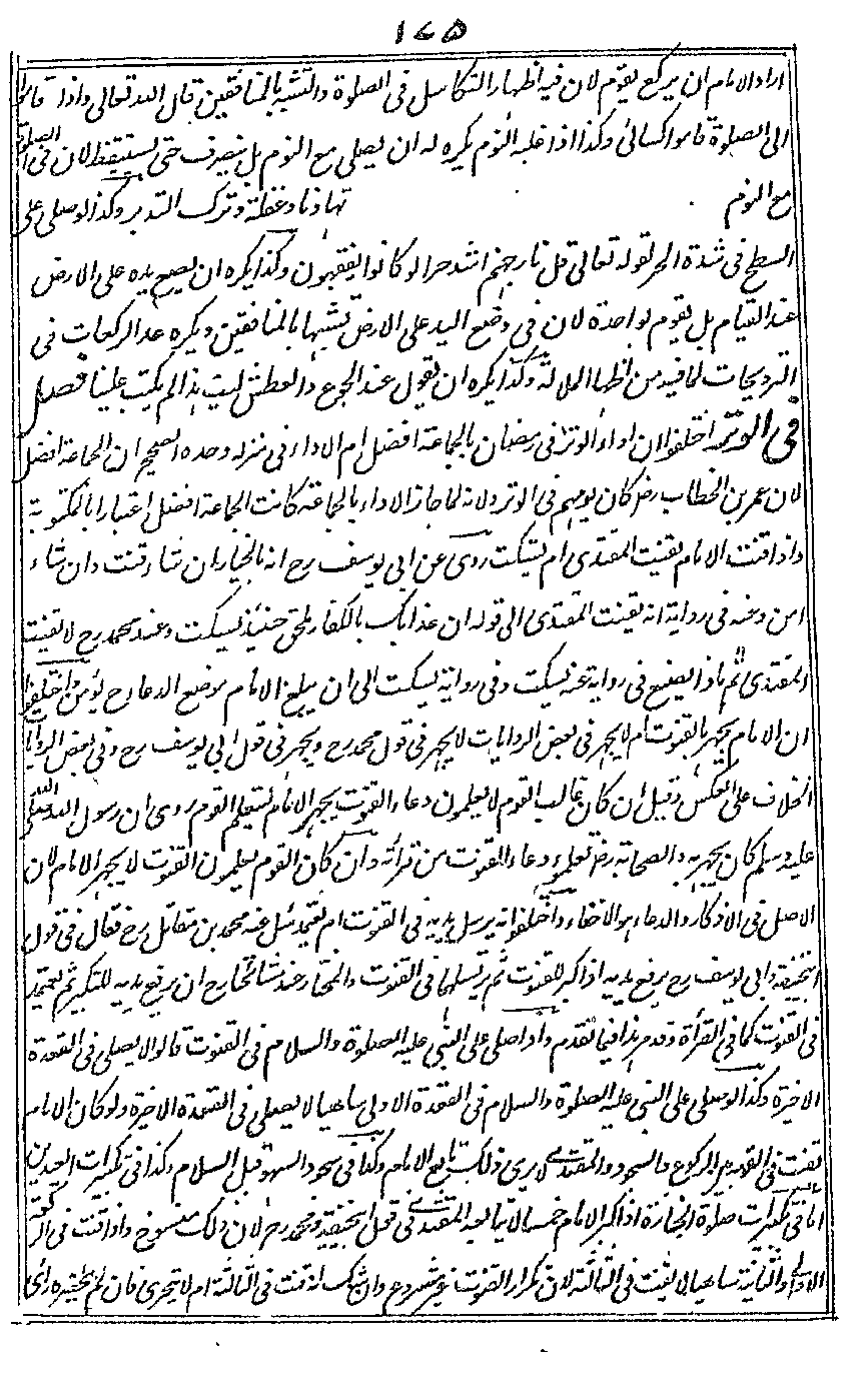 ١٧٥
اراد الامام ان يركع يقوم لان فيه اظهار التكاسل فى الصلوة والتشبه بالمنافقين قال الله تعالى واذا قاموا
الى الصلوة قاموا كسالى وكذا اذا غلبه النوم يكره له ان يصلى مع النوم بل ينصرف حتى يستيقظ لان فى الصلوة
مع النوم تهاونا وغفلة وترك التدبر وكذا لو صلى على
السطح فى شدة الحر لقوله تعالى قل نار جهنم اشد حرا لو كانوا يفقهون وكذا يكره ان يضع يده على الارض
عند القيام بل يقوم بواحدة لان فى وضع اليد على الارض تشبها بالمنافقين ويكره عد الركعات فى
الترويحات لما فيه من اظهار الملالة وكذا يكره ان يقول عند الجوع والعطش ليت هذا لم يكتب علينا فصل
فى الوتر اختلفوا ان اداء الوتر فى رمضان بالجماعة افضل ام الاداء فى منزله وحده الصحيح ان الجماعة افضل
لان عمر بن الخطاب رض كان يؤمهم فى الوتر ولانه لما جاز الاداء بالجماعة كانت الجماعة افضل اعتبارا بالمكتوبة
واذا قنت الامام يقنت المقتدى ام يسكت روى عن ابى يوسف رح انه بالخيار ان شاء قنت وان شاء
امن وعنه فى رواية انه يقنت المقتدى الى قوله ان عذابك بالكفار ملحق حينئذ يسكت وعند محمد رح لا يقنت
المقتدى ثم ماذا يصنع فى رواية عنه يسكت وفى رواية يسكت الى ان يبلغ الامام موضع الدعاء رح يؤمن واختلفوا
ان الامام يجهر بالقنوت ام لا يجهر فى بعض الروايات لا يجهر فى قول محمد رح ويجهر فى قول ابى يوسف رح وفى بعض الروايات
الخلاف على العكس وقيل ان كان غالب القوم لا يعلمون دعاء القنوت يجهر الامام ليتعلم القوم روى ان رسول الله صلى الله
عليه وسلم كان يجهر به والصحابة رض تعلموا دعاء القنوت من قرأته وان كان القوم يعلمون القنوت لا يجهر الامام لان
الاصل فى الاذكار والدعاء هو الاخفاء واختلفوا انه يرسل يديه فى القنوت ام يعتمد سئل عنه محمد بن مقاتل رح فقال فى قول
ابيحنيفة وابى يوسف رح يرفع يديه اذا كبر للقنوت ثم يرسلهما فى القنوت والمختار عند مشائخنا رح ان يرفع يديه للتكبير ثم يعتمد
فى القنوت كما فى القرأة وقد مر هذا فيما تقدم واذا صلى على النبى عليه الصلوة والسلام فى القنوت قالوا لا يصلى فى القعدة
الاخيرة وكذا لو صلى على النبى عليه الصلوة والسلام فى القعدة الاولى ساهيا لا يصلى فى القعدة الاخيرة ولو كان الامام
يقنت فى القومة بين الركوع والسجود والمقتدى لا يرى ذلك يتابع الامام وكذا فى سجود السهو قبل السلام وكذا فى تكبيرات العيدين
اما فى تكبيرات صلوة الجنازة اذا كبر الامام خمسا لا يتابعه المقتدى فى قول ابيحنيفة ومحمد رح لان ذلك منسوخ واذا قنت فى الركعة
الاولى والثانية ساهيا لا يقنت فى الثالثة لان تكرار القنوت غير مشروع وان شك انه قنت فى الثالثة ام لا يتحرى فان لم يحضره رأى